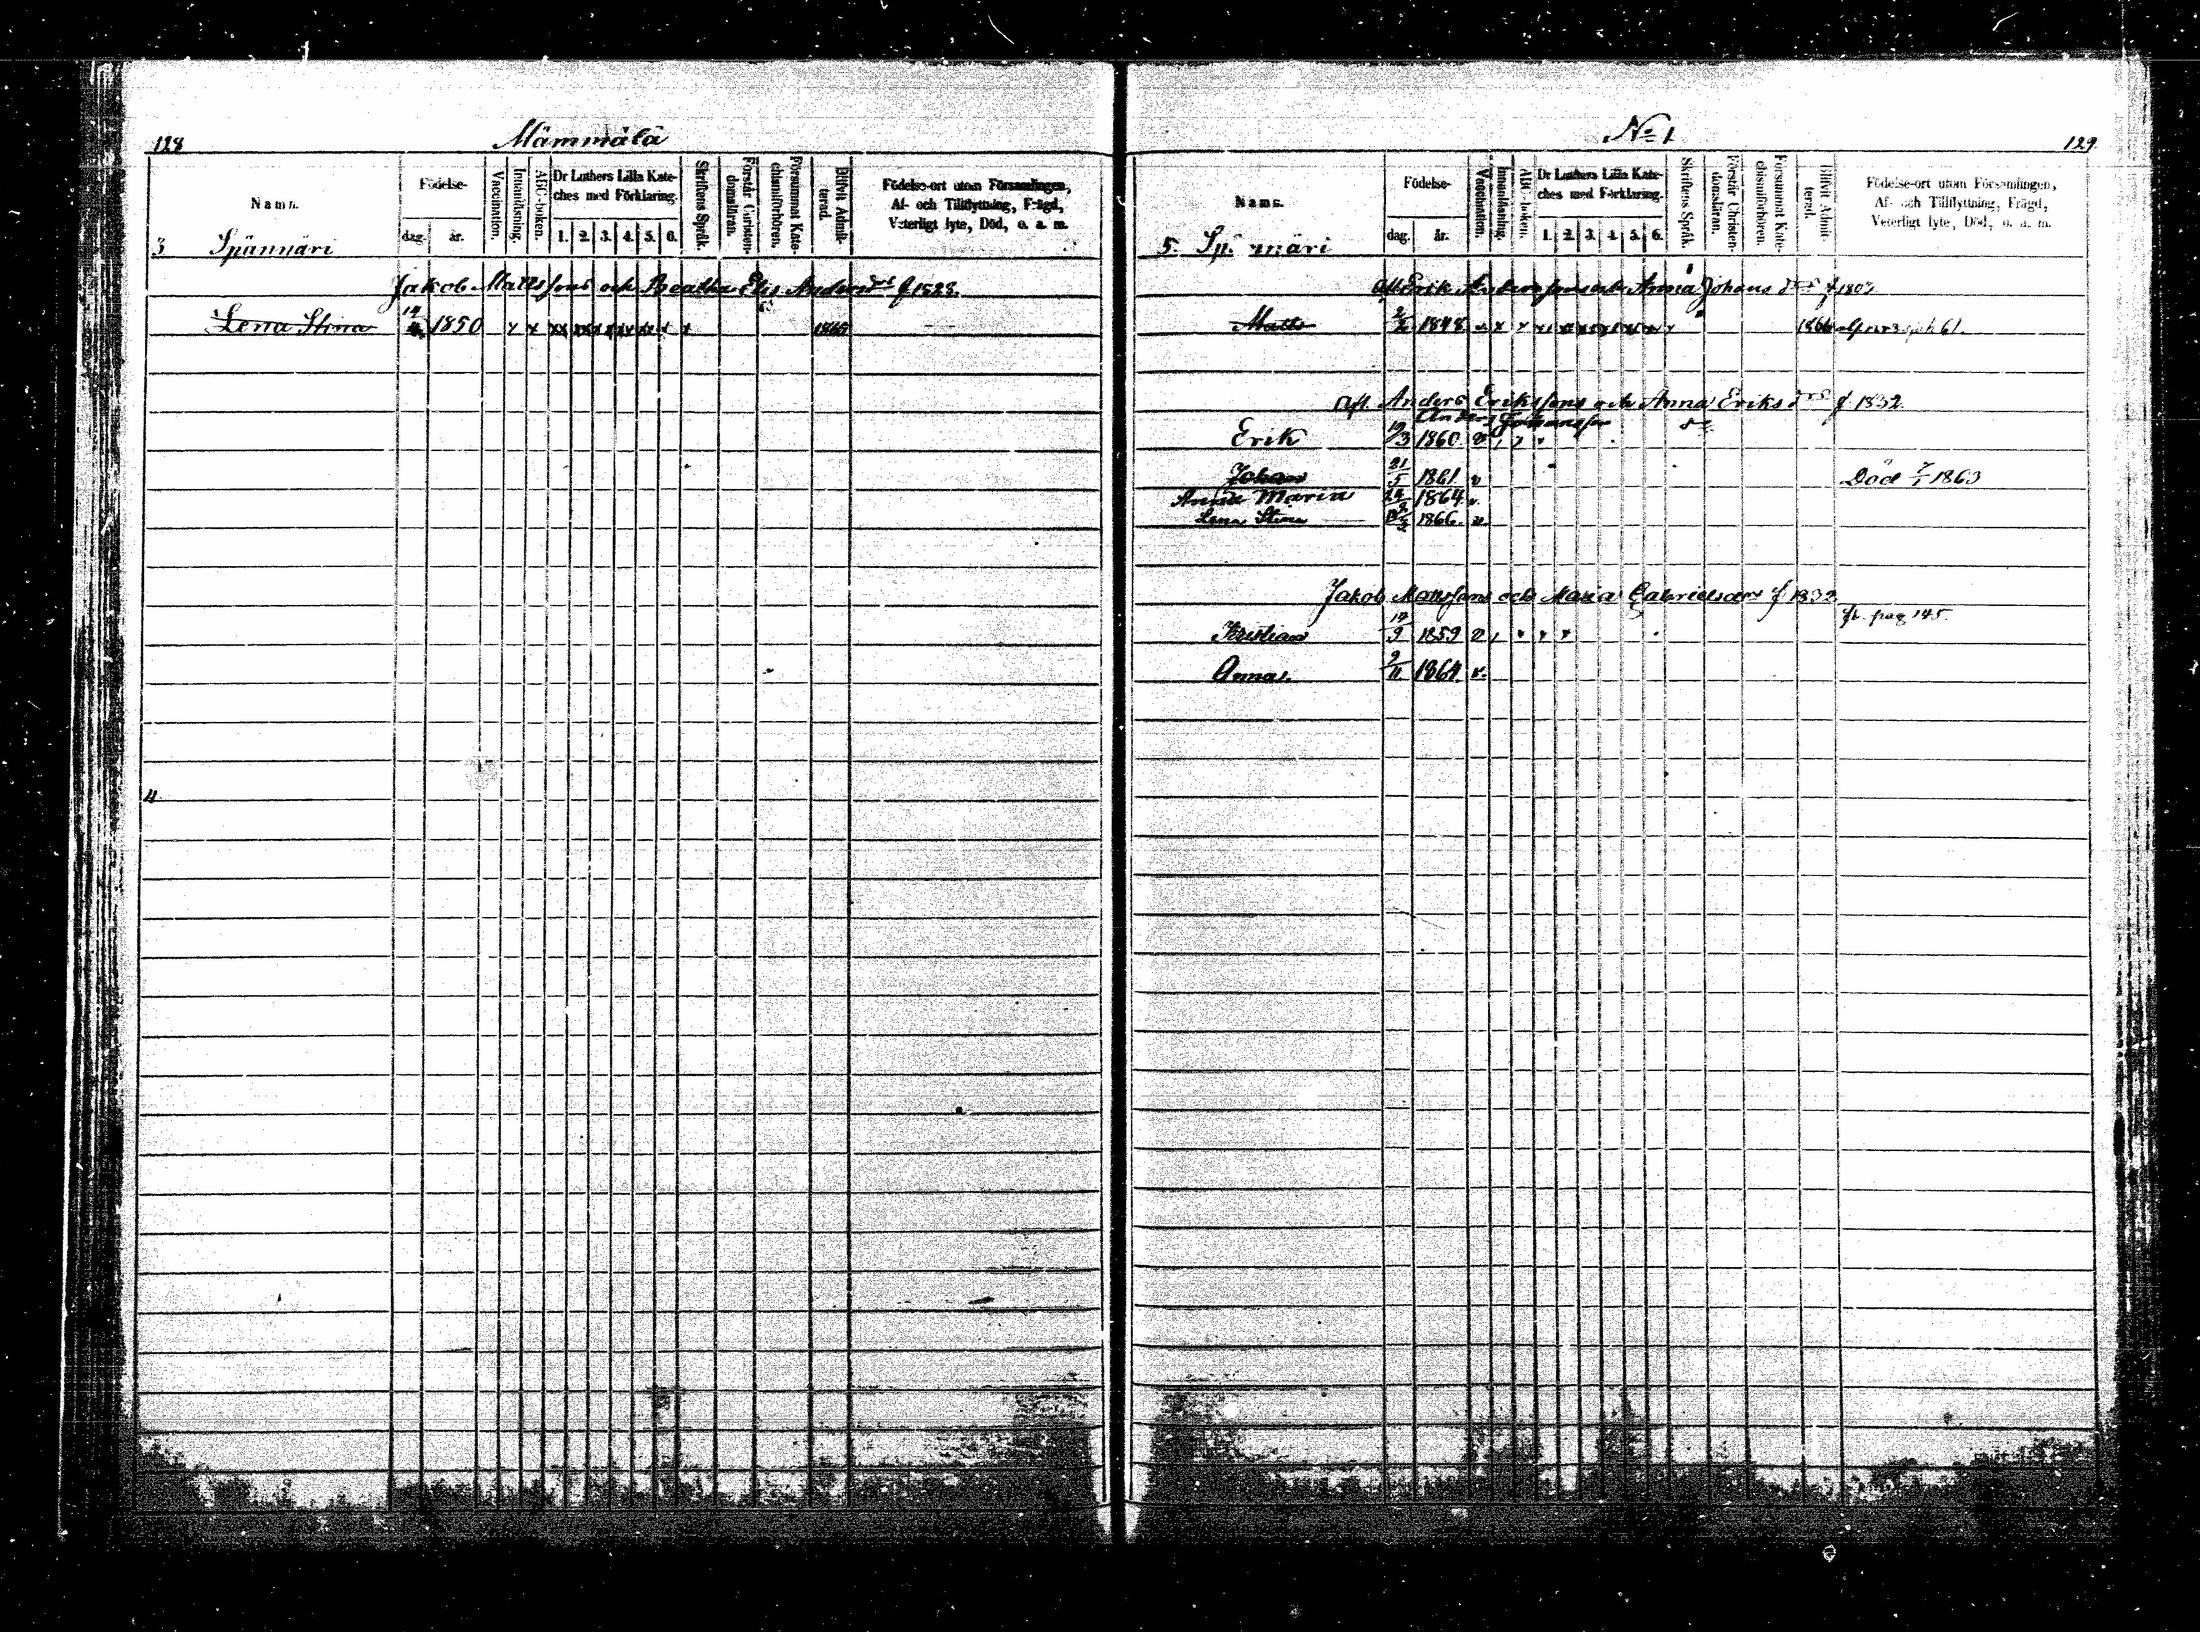 128 Mämmälä
Namn. Födelse- dag. år. Vaccination. Innanläsning. ABC-boken. Dr Luthers Lilla Kateches med Förklaring. 1. 2. 3. 4. 5. 6. Skriftens Språk. Förstår Christendomsläran. Försummat Katechismiförhören. Blifvit Admitterad. Födelse-ort utom Församlingen, Af- och Tillflyttning, Frägd, Veterligt lyte, Död, o. a. m.
3 Spännäri
Jakob Mattssons och Beatha Elis Andersdr f 1828.
Lena Stina 1850 x x xx xx x x xx xx x x 1865
4.
No 1 129
Namn. Födelse- dag. år. Vaccination. Innanläsning. ABC-boken. Dr Luthers Lilla Kateches med Förklaring. 1. 2. 3. 4. 5. 6. Skriftens Språk. Förstår Christendomsläran. Försummat Katechismiförhören. Blifvit Admitterad. Födelse-ort utom Församlingen, Af- och Tillflyttning, Frägd, Veterligt lyte, Död, o. a. m.
5. Sp nnäri
Erik Anderssons och Anna Johans drs f 1807
Matts 2/2 1848 1866
Afl. Anders Erikssons och Anna Eriks drs f 1832
Anders Johansson
Erik 19/3 1860 v
Johan 21/5 1861 v Död 7/1 1863
Anna Maria 1864 v.
Lena Stina 1866. v.
Jakob Mattssons och Maria Gabrielsdrs f 1832
fl. pag 145.
Kristian 14/9 1859 v
Anna 9/11 1864 v.